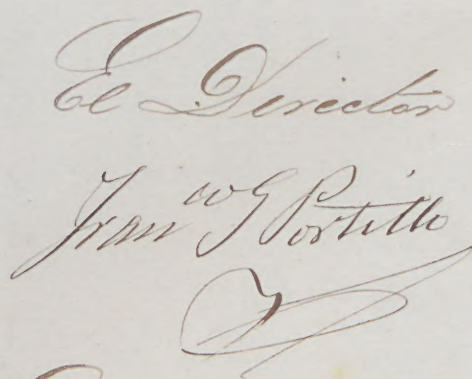 El Director
Fran.co G Portillo